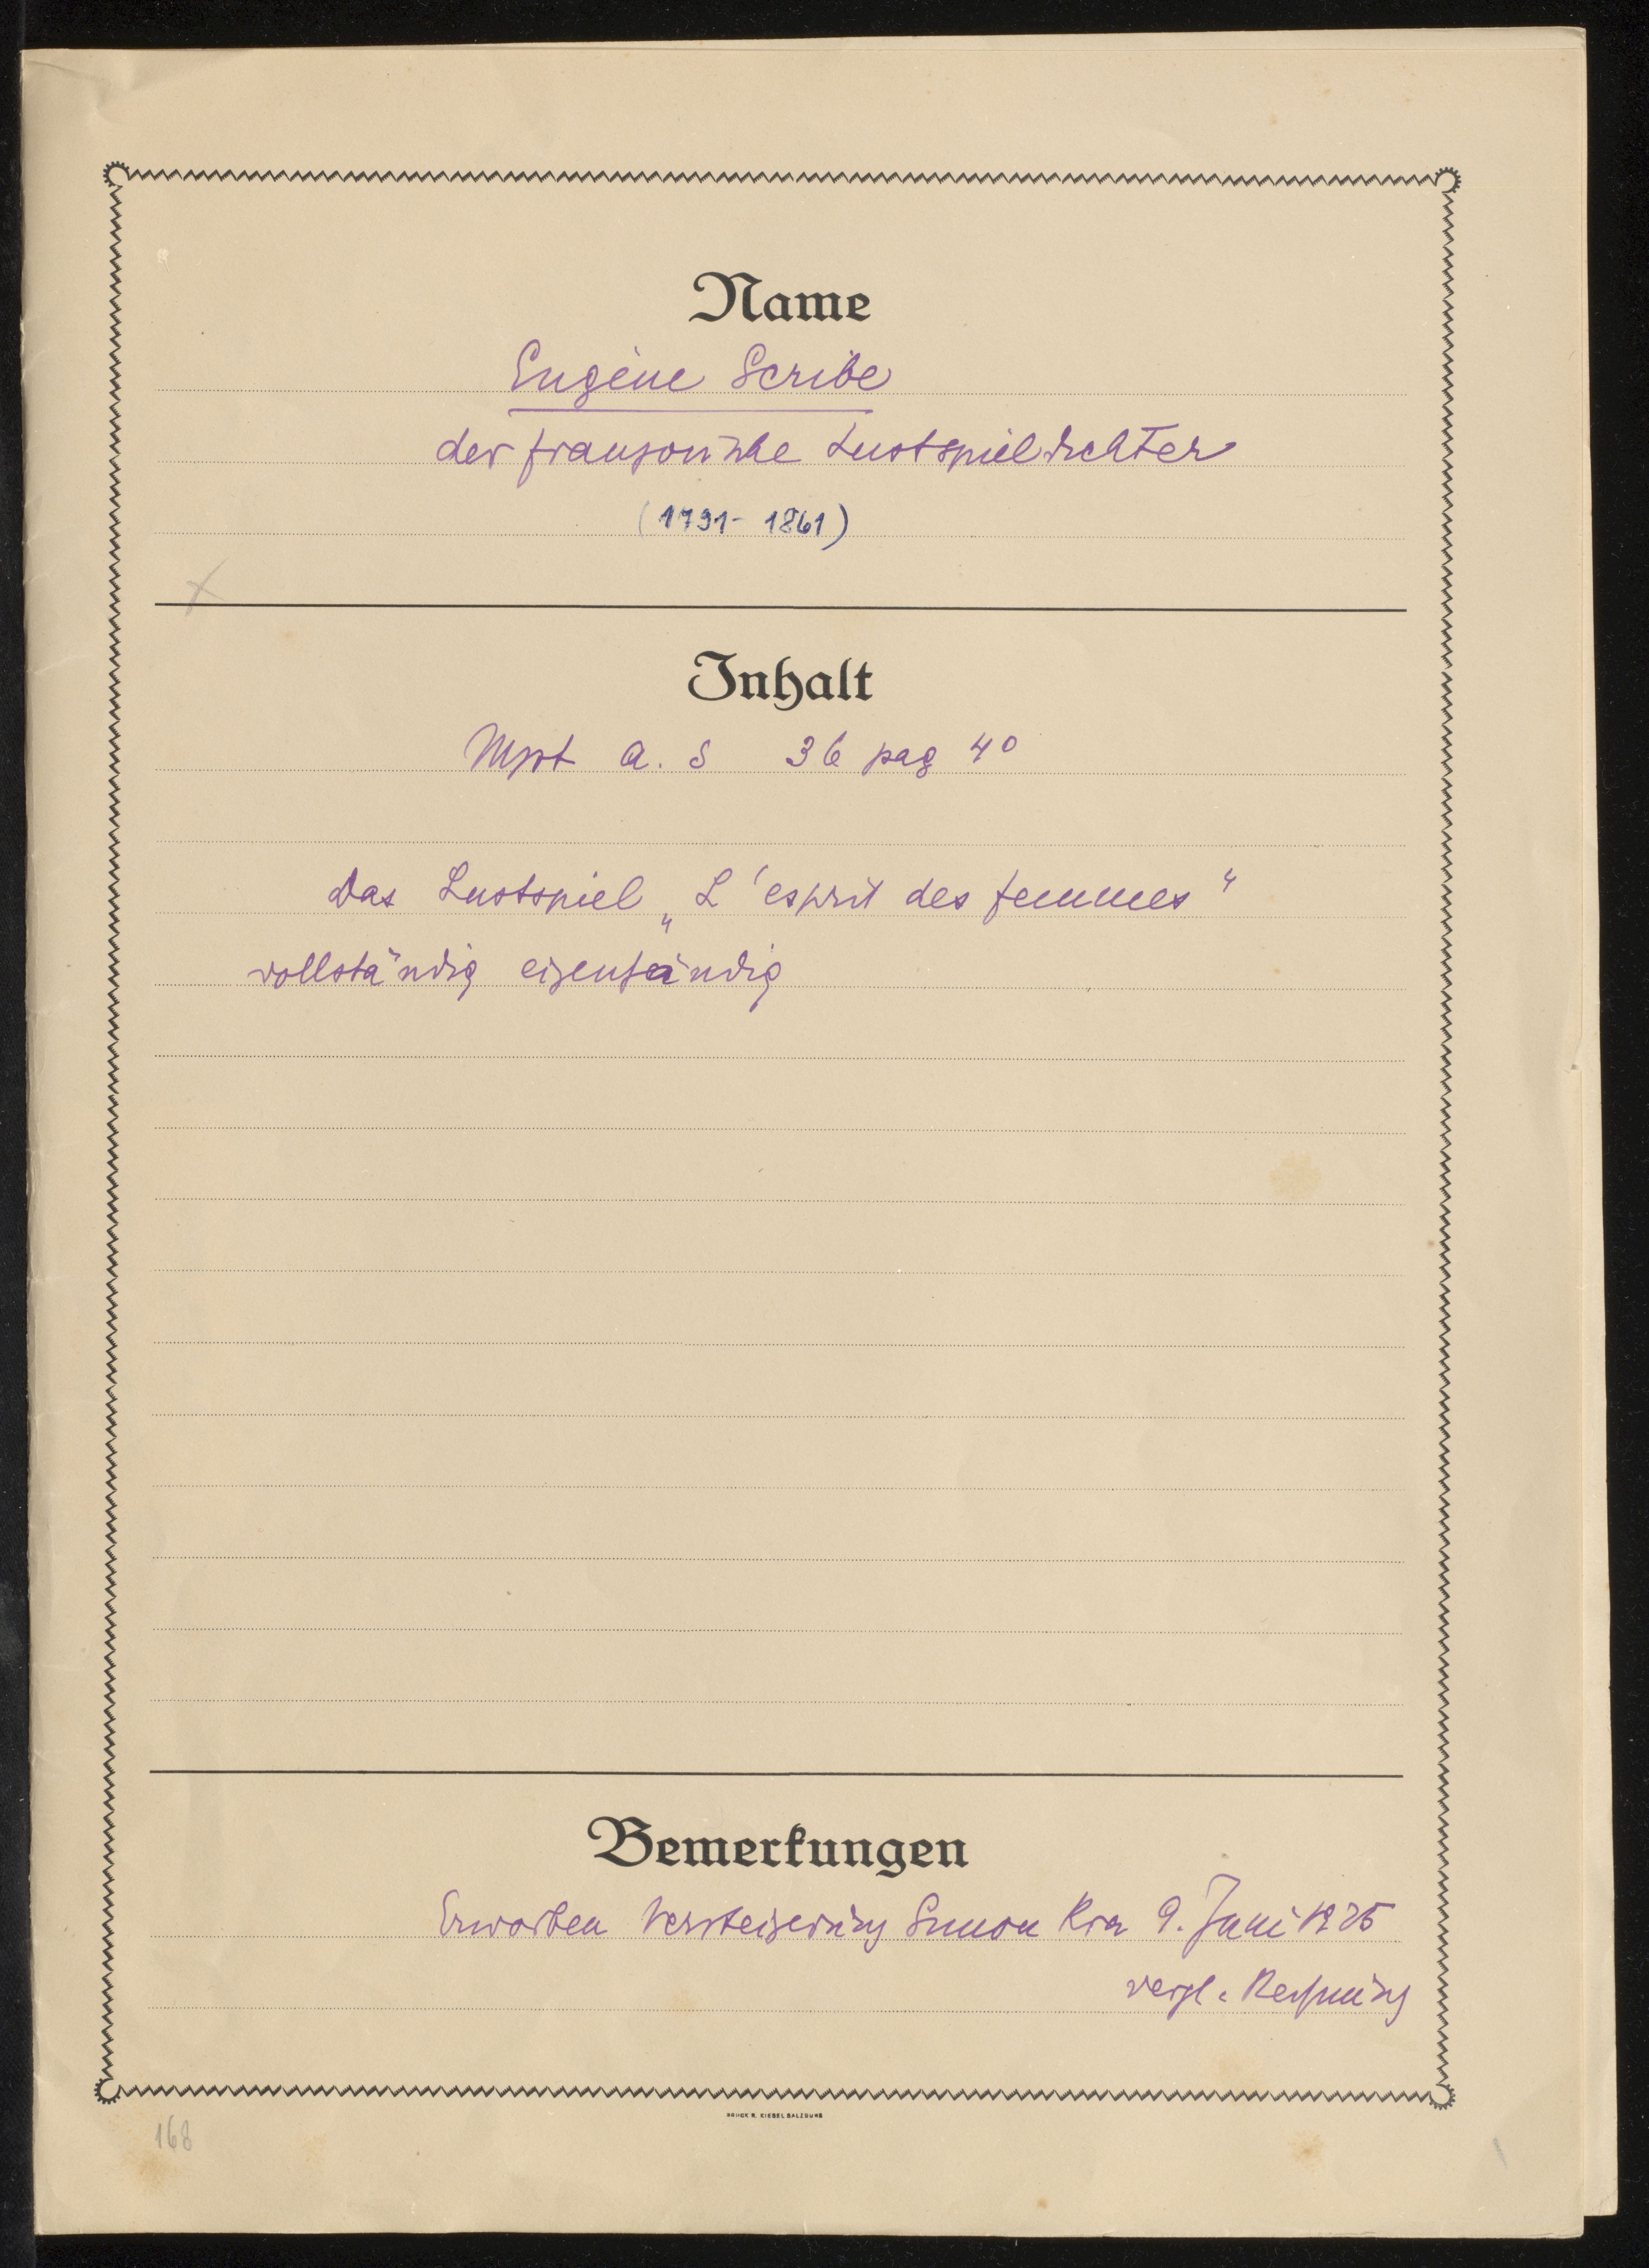 Name
Eugène Scribe
der französische Lustspieldichter
(1791- 1861)
Inhalt
Mspt a. S 36 pag 4°
Das Lustspiel „L'esprit des femmes"
vollständig eigenhändig
Bemerkungen
Erworben Versteigerung Simon Kra 9. Juni 1925
vergl. Rechnung
DRUCK R. KIESEL SALZBURG
168